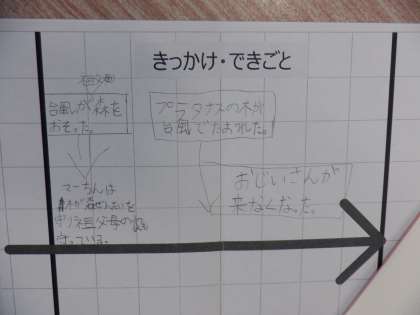 きっかけ・できごと
台風が森を
おそった。
プラタナスの木が
台風でたおれた。
マーちんは
木が
祖父母の
守っている。
おじいさんが
来なくなった。